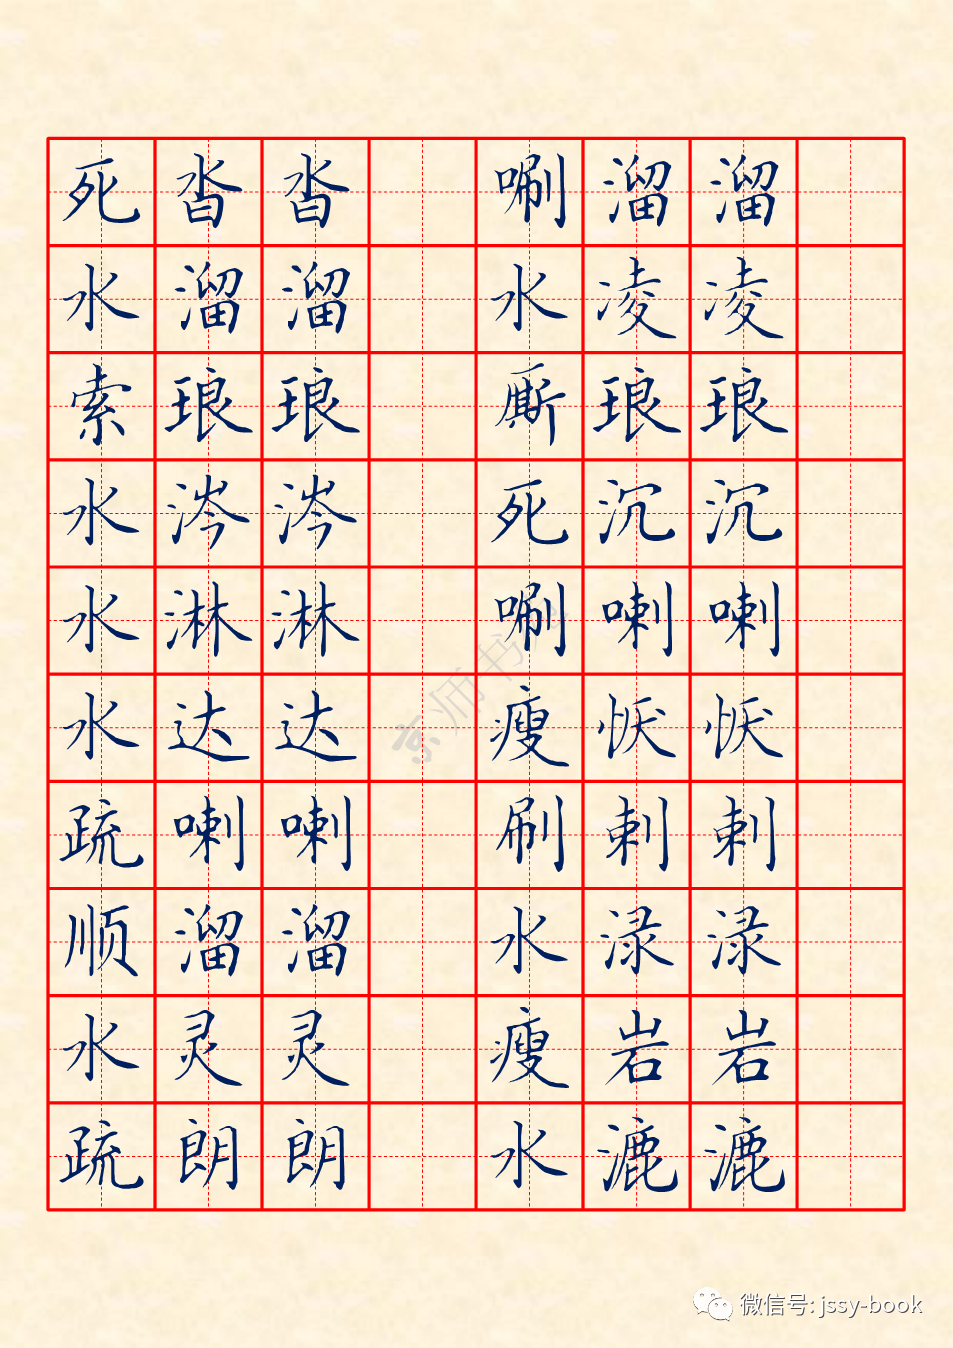 死沓沓 唰溜溜
水溜溜 水凌凌
索琅琅 厮琅琅
水涔涔 死沉沉
水淋淋 唰喇喇
水达达 瘦恹恹
疏喇喇 刷剌剌
顺溜溜 水渌渌
水灵灵 瘦岩岩
疏朗朗 水漉漉
京师书苑
微信号: jssy-book